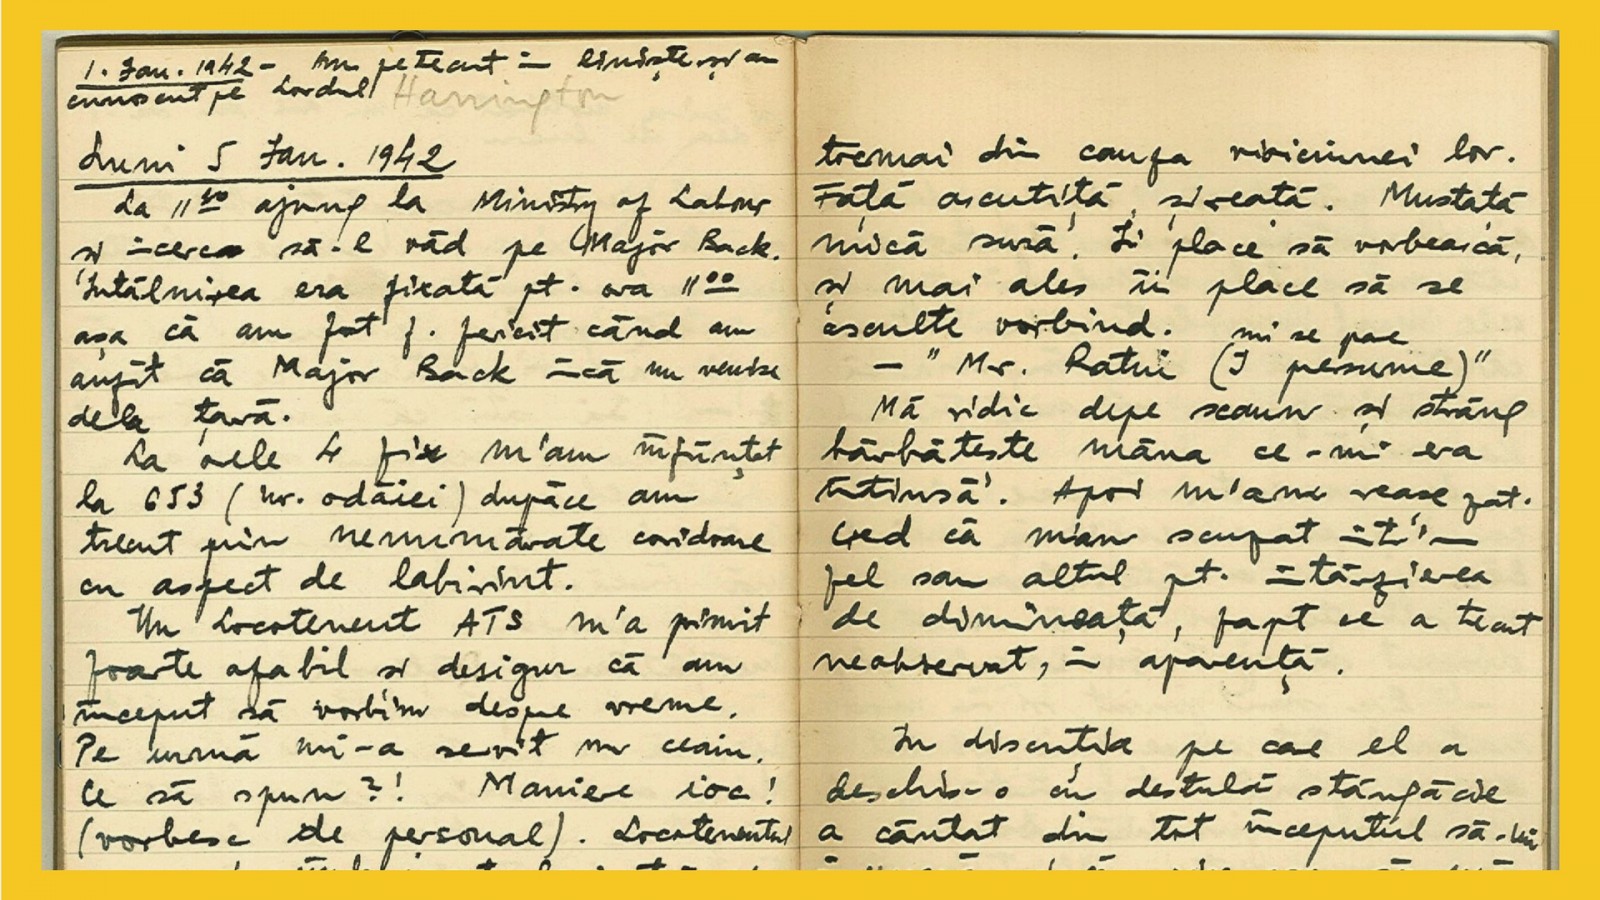 1. Jan. 1942 - Am petrecut în liniște și am
cunoscut pe Lordul Harrington
Luni 5 Jan. 1942
La 11⁴⁰ ajung la Ministry of Labour
si încerc să-l văd pe Major Back.
Întâlnirea era fixată pt. ora 11⁰⁰
așa că am fost f. fericit când am
auzit că Major Back încă nu venise
dela țară.
La orele 4 fix m'am înființat
la 653 (nr. odăiei) dupăce am
trecut prin nenumărate coridoare
cu aspect de labirint.
Un Locotenent ATS m'a primit
foarte afabil si desigur că am
început să vorbim despre vreme.
Pe urmă mi-a servit un ceaiu.
Ce să spun?! Maniere ioc!
(vorbesc de personal). Locotenentul
tocmai din cauza
lor.
Față ascuțită, șireată. Mustață
mică sură. Îi place să vorbească,
si mai ales îi place să se
asculte vorbind. mi se pare
- "Mr. Ratiu (I persume)"
Mă ridic depe scaun si strâng
bărbătește mâna ce-mi era
întinsă. Apoi m'am reașezat.
Cred că m'am scuzat într'un
fel sau altul pt. întârzierea
de dimineață, fapt ce a trecut
neobservat, în aparență.
In discuția pe care el a
deschis-o cu destulă stângăcie
a căutat din tot începutul să-mi